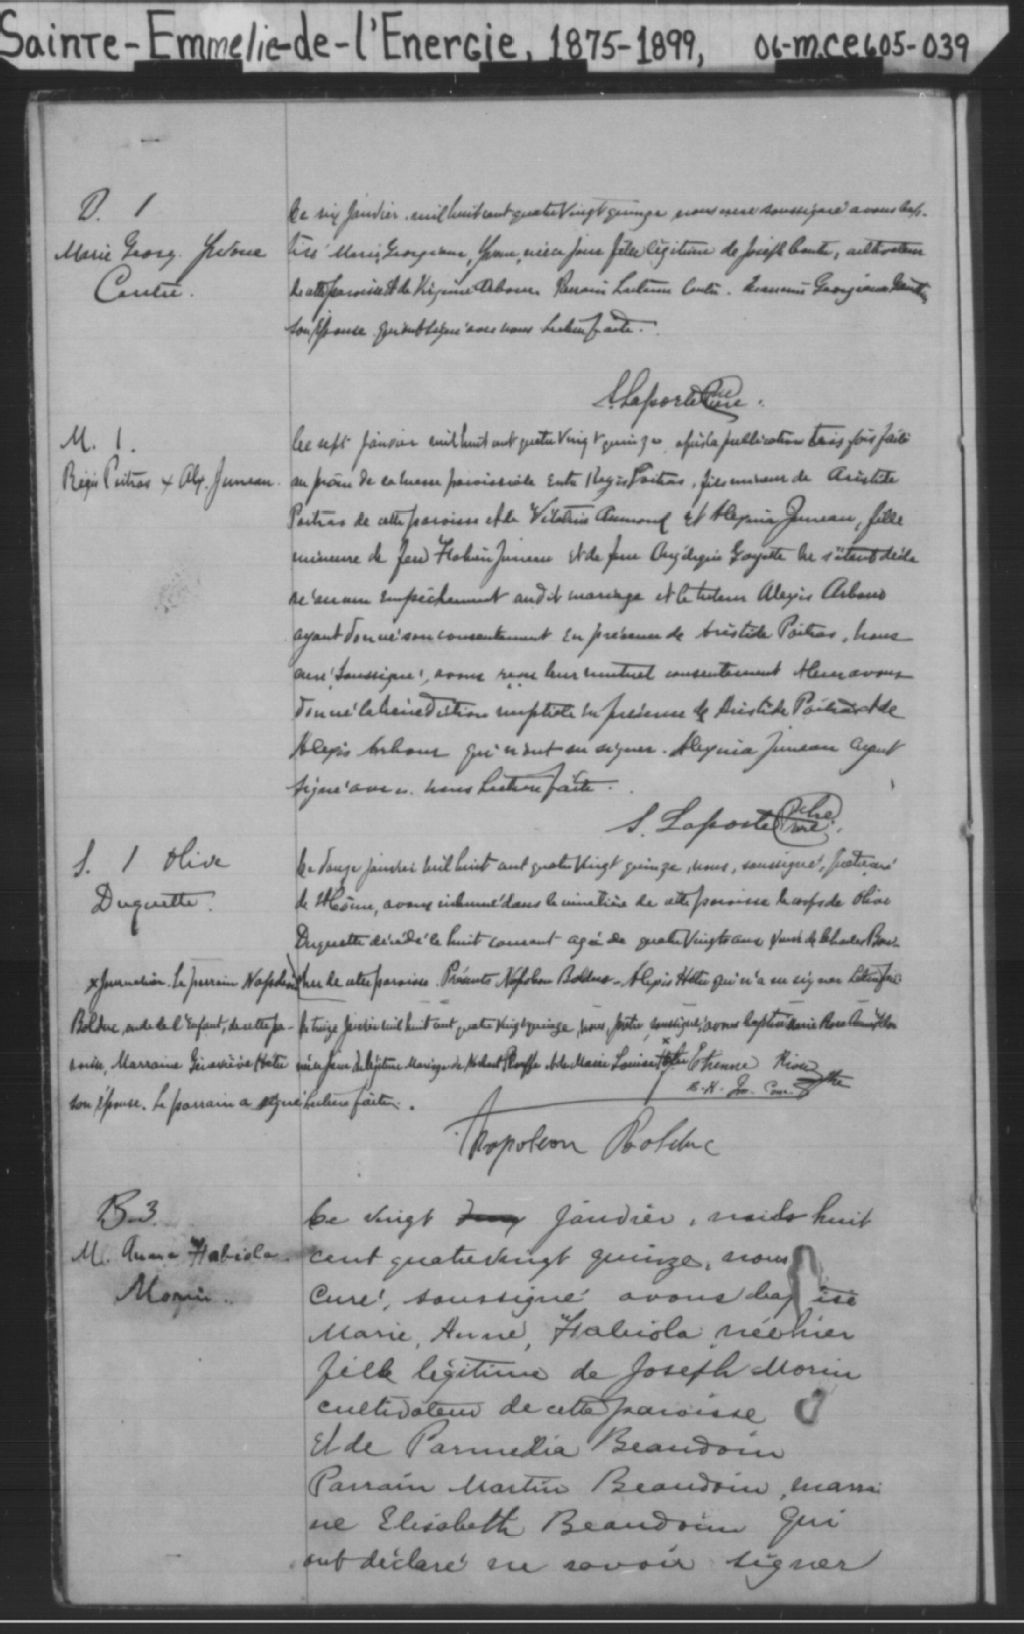 Sainte-Emmelie-de-l'Energie, 1875-1899, 06-M.CE605-039
B. 1
Marie Georg. Yvonne
Coutu.
Le six janvier, mil huit cent quatre vingt quinze nous curé soussigné avons bap-
tisé Marie, Georgianna, Yvonne, née ce jour fille légitime de Joseph Coutu, cultivateur
de cette paroisse et de Virginie Arbour. Parrain Coutu. Marraine Georgianna
son épouse qui ont signé avec nous. Lecture faite.
S. Laporte Ptre Curé.
M. 1.
Régis Poitras x Alx. Juneau.
Le sept janvier mil huit cent quatre vingt quinze après la publication trois fois faite
au prône de la messe paroissiale entre Régis Poitras, fils mineur de Aristide
Poitras de cette paroisse et de Aumond et Alexina Juneau, fille
mineure de feu Juneau et de feue Angélique Goyette ne s'étant décla
ré aucun empêchement audit mariage et le tuteur Alexis Arbour
ayant donné son consentement en présence de Aristide Poitras, nous
curé soussigné, avons reçu leur mutuel consentement et leur avons
donné la bénédiction nuptiale en présence de Aristide Poitras et de
Alexis Arbour qui n'ont su signer. Alexina Juneau ayant
signé avec nous. Lecture faite.
S. Laporte Ptre Curé.
S. 1 Olive
Duquette.
Le douze janvier mil huit cent quatre vingt quinze, nous, soussigné, prêtre curé
de St Côme, avons inhumé dans le cimetière de cette paroisse le corps de Olive
Duquette décédée le huit courant agée de quatre vingts ans veuve de Charles Bou-
cher de cette paroisse. Présents Napoléon Bolduc - Alexis Hétu qui n'a su signer. Lecture faite
x Journalier. Le parrain Napoléon
Bolduc, oncle de l'enfant, de cette pa-
roisse, Marraine Géneviève Hétu
son épouse. Le parrain a signé. Lecture faite.
Le treize janvier mil huit cent quatre vingt quinze, nous, prêtre, soussigné, avons baptisé Marie Rose
née ce jour du légitime mariage de Plouffe x et de Marie Louise Hétu Etienne Ptre
Napoleon Bolduc
B. 3.
M. Anna Fabiola
Morin.
Le vingt janvier, mil huit
cent quatre vingt quinze, nous
Curé, soussigné avons baptisé
Marie, Anne, Fabiola née hier
fille légitime de Joseph Morin
cultivateur de cette paroisse
et de Parmelia Beaudoin
Parrain Martin Beaudoin, marrai
ne Elisabeth Beaudoin qui
ont déclaré ne savoir signer